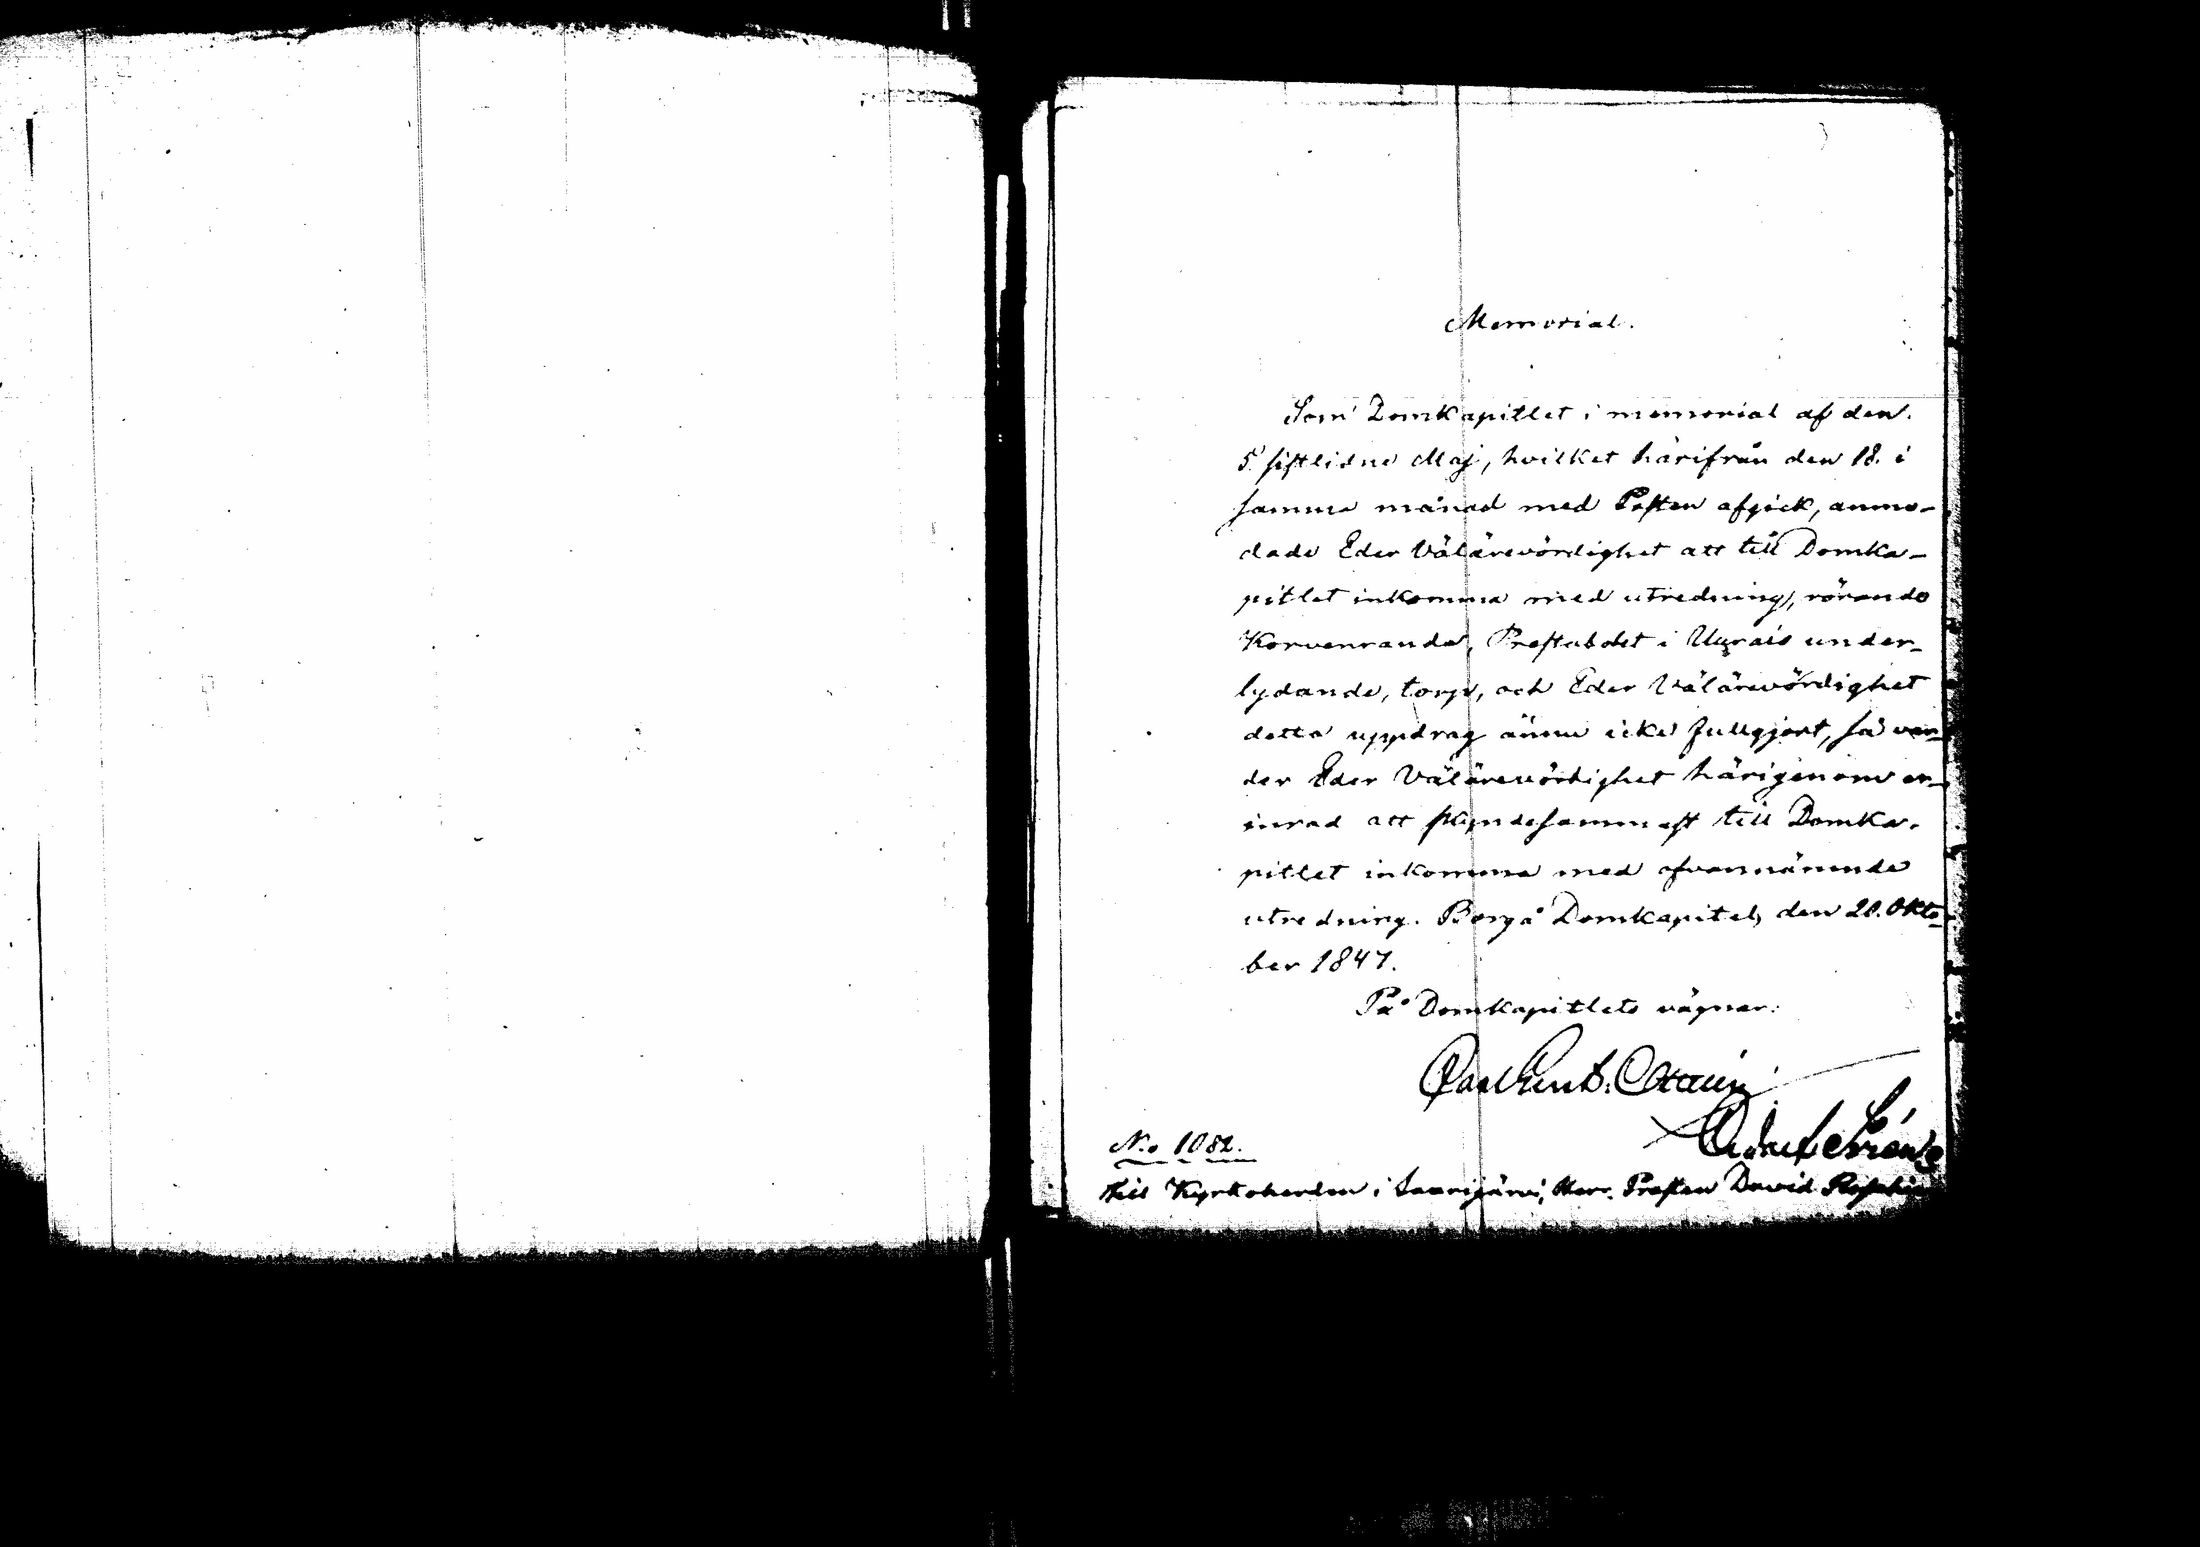 Memorial.
Som Domkapitlet i memorial af den
5 sistlidne Maj, hvilket härifrån den 18. i
samma månad med Posten afgick, anmo-
dade Eder Välärevördighet att till Domka-
pitlet inkomma med utredning, rörande
Korvenranda, Prestabolet i Uurais under-
lydande, torp, och Eder Välärevördighet
detta uppdrag ännu icke fullgjort, så var-
der Eder Välärevördighet härigenom er-
inrad att skyndesammast till Domka-
pitlet inkomma med ofvannämnde
utredning. Borgå Domkapitel, den 20. Okto-
ber 1847.
På Domkapitlets vägnar:
No 1082.
Till Kyrkoherden i Saarijärvi, Herr Prosten David